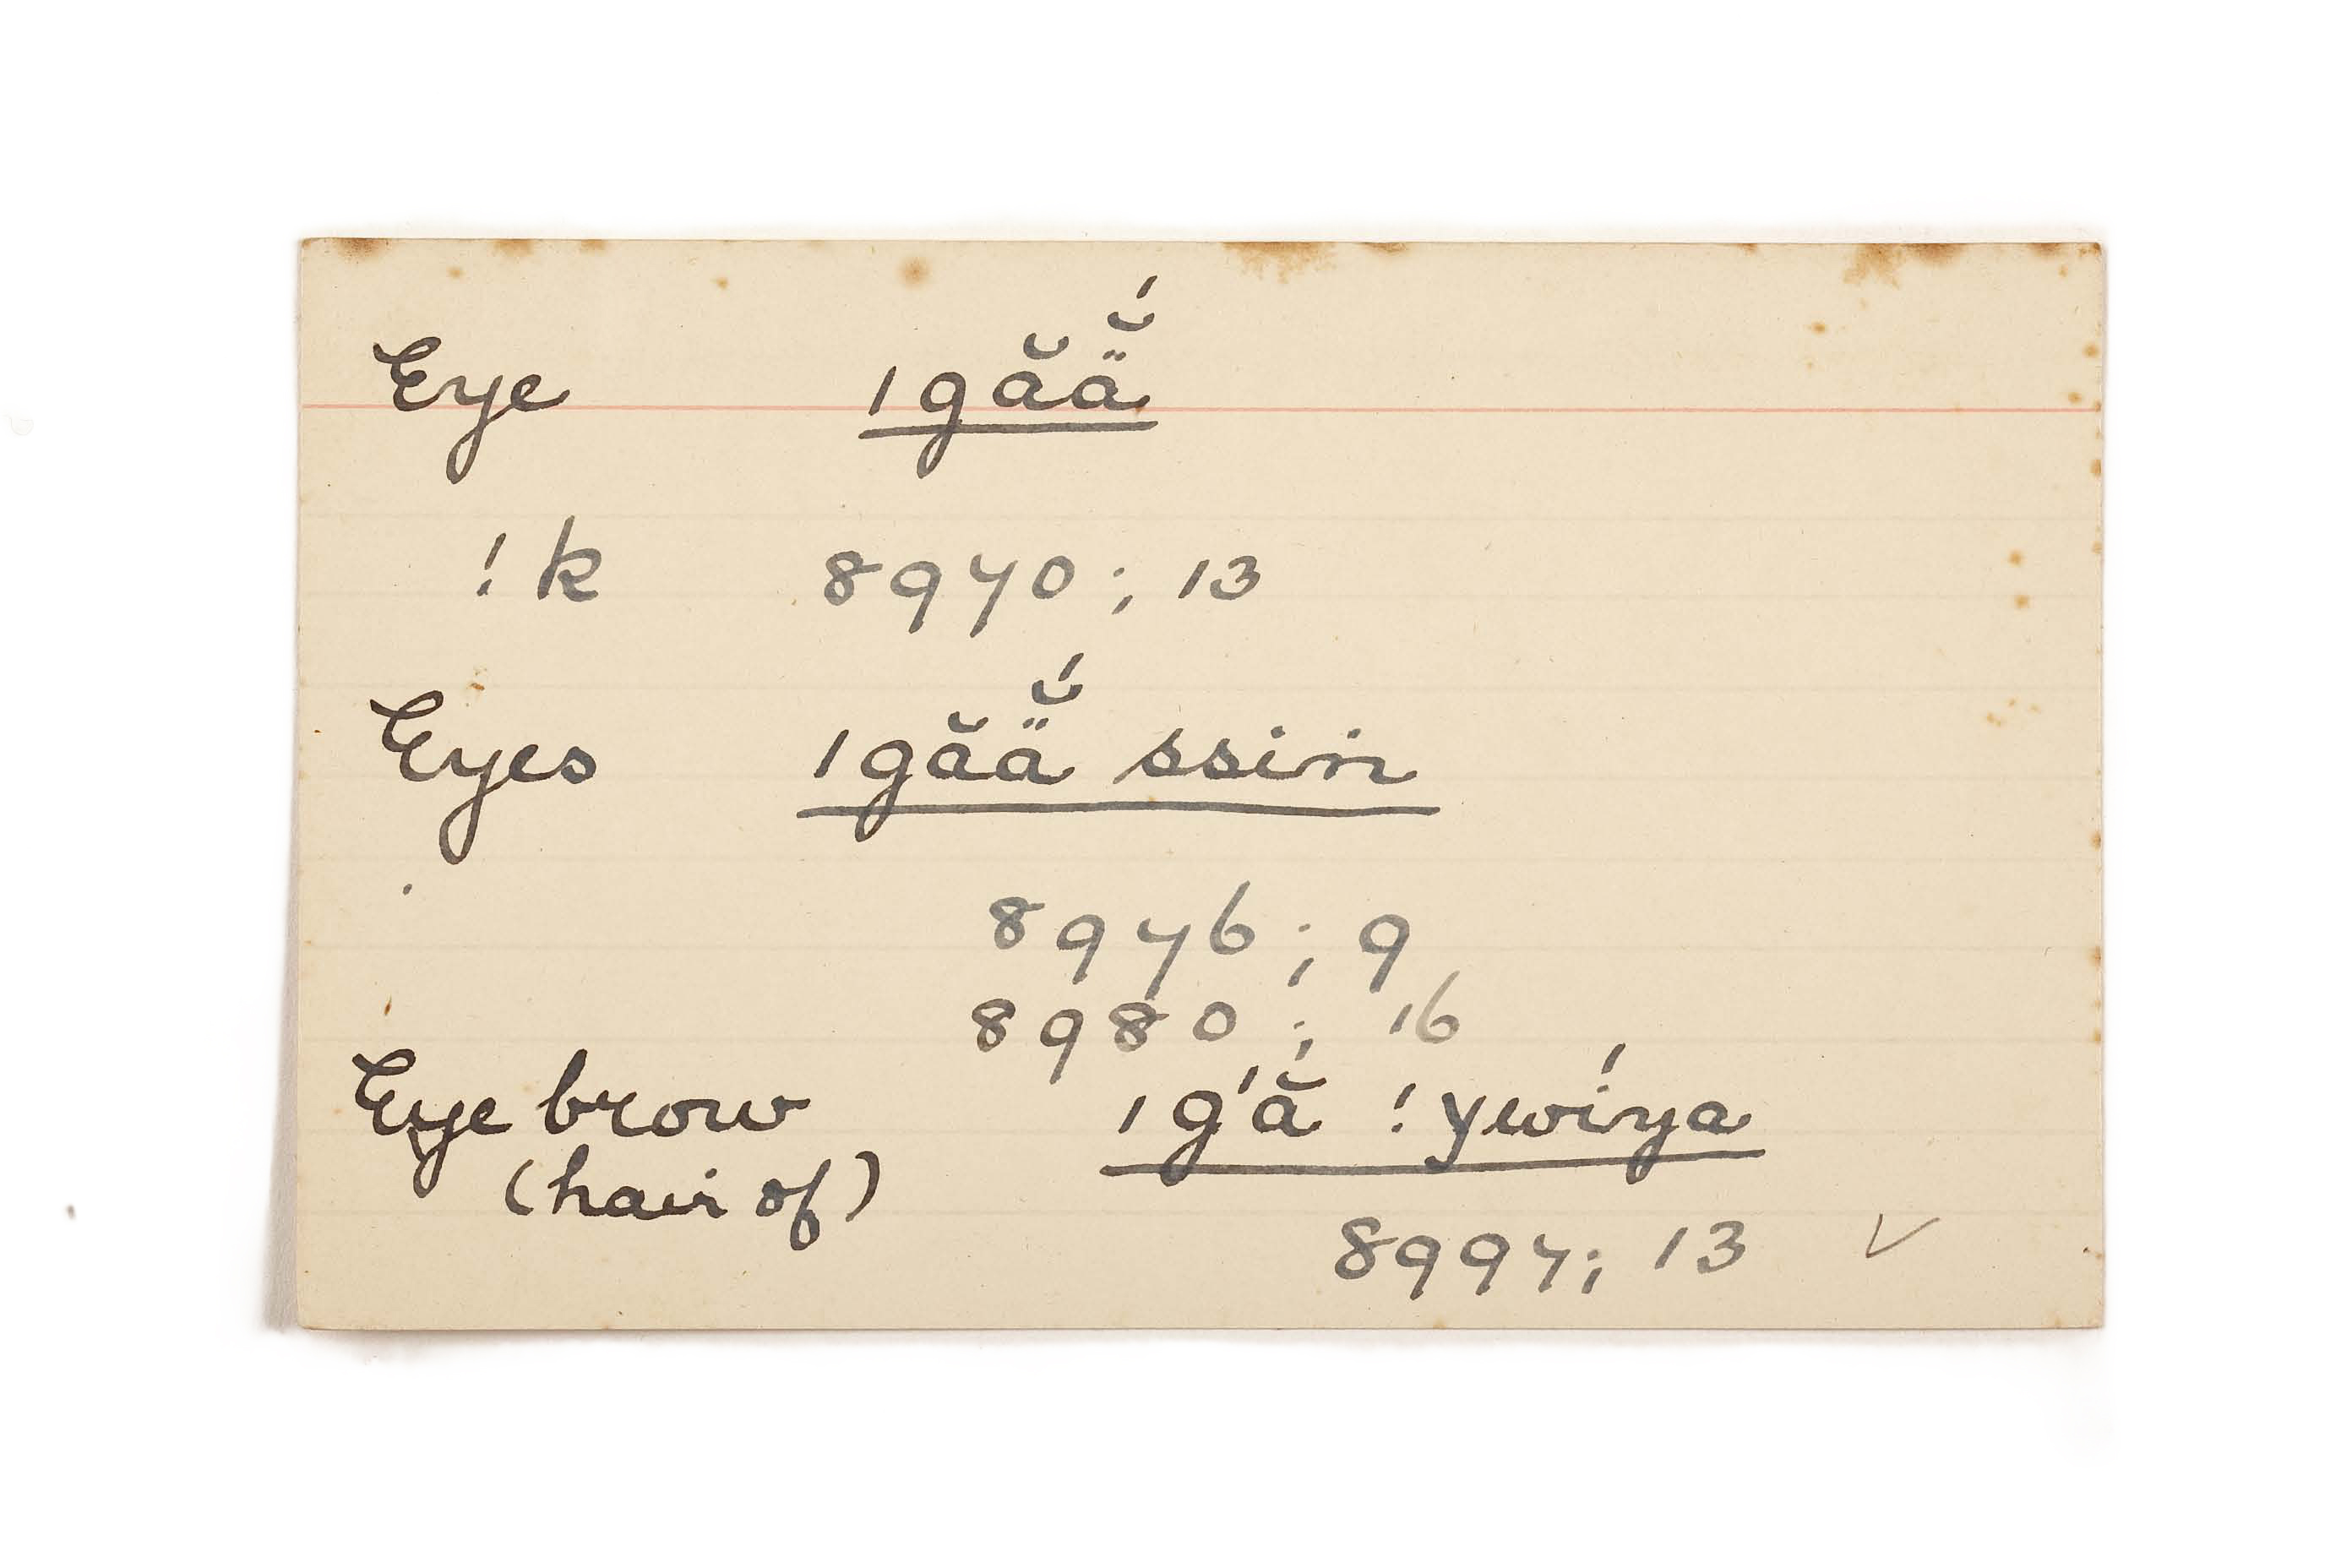 Eye ıgăä̆́
!k 8970; 13
Eyes ıgăä̆́ ssin̈
8976; 9
8980; 16
Eye brow ıg'ắ !ywíya
(hair of)
8997; 13 ✓